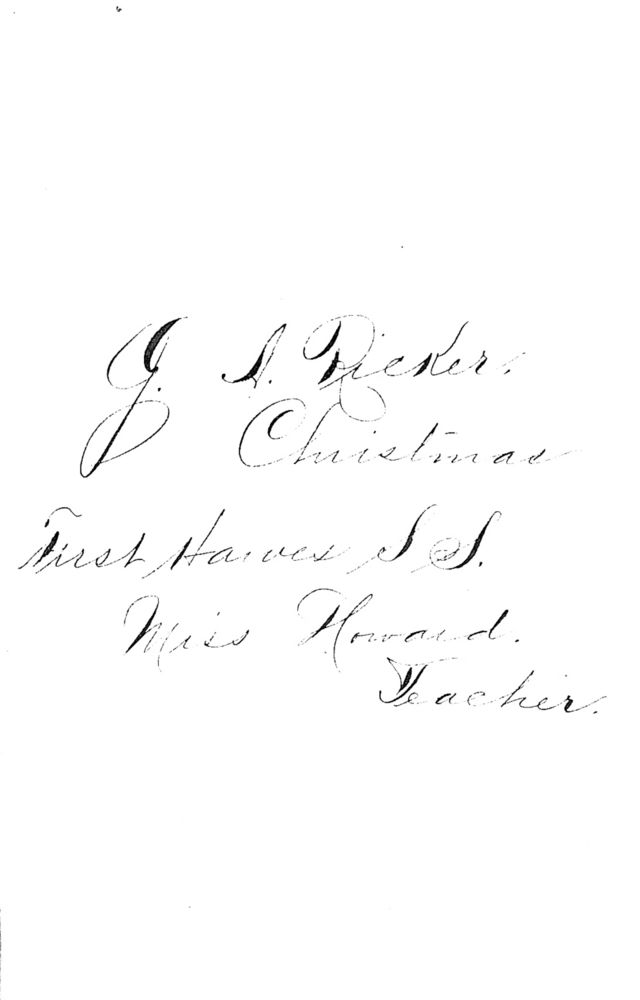 G. A. Ricker.
Christmas
First Hawes S S.
Miss Howard.
Teacher.